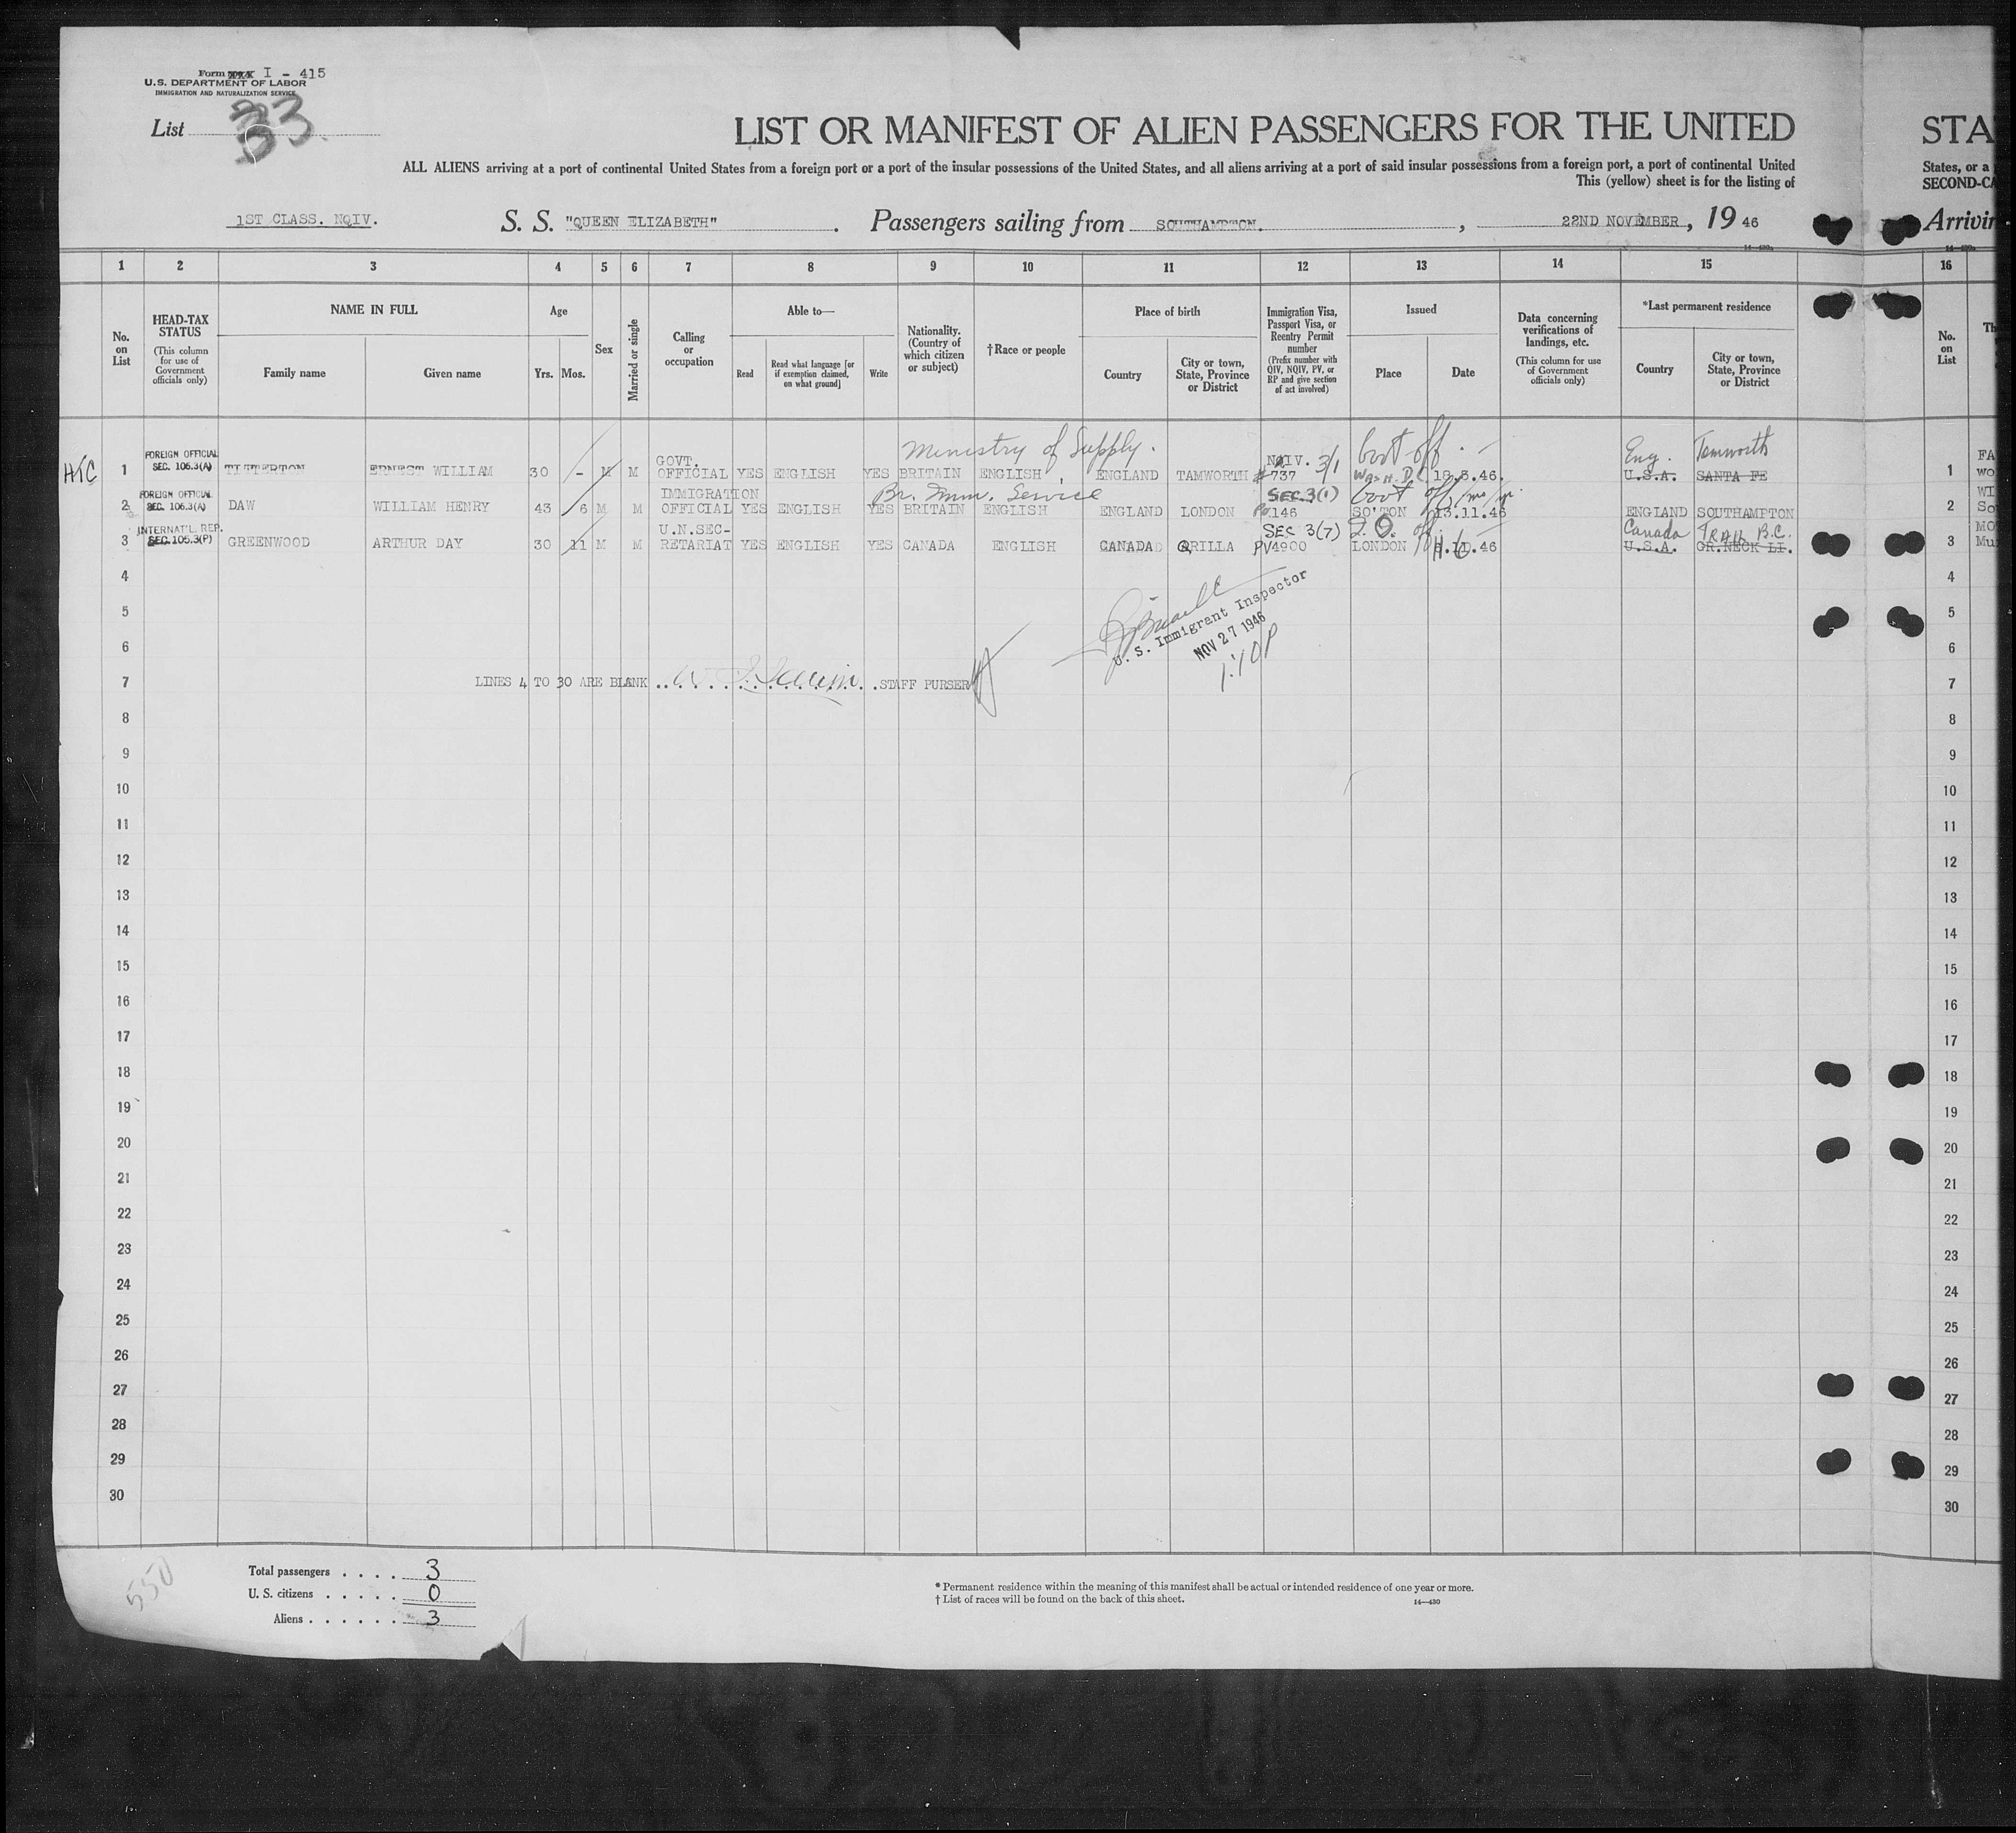 Form I - 415
U.S. DEPARTMENT OF LABOR
IMMIGRATION AND NATURALIZATION SERVICE
List 33
LIST OR MANIFEST OF ALIEN PASSENGERS FOR THE UNITED STA
ALL ALIENS arriving at a port of continental United States from a foreign port or a port of the insular possessions of the United States, and all aliens arriving at a port of said insular possessions from a foreign port, a port of continental United States, or a
This (yellow) sheet is for the listing of SECOND-CA
1ST CLASS. NQIV. S. S. "QUEEN ELIZABETH". Passengers sailing from SOUTHAMPTON. , 22ND NOVEMBER, 19 46 Arrivin
1 2 3 4 5 6 7 8 9 10 11 12 13 14 15 16
No. on List
HEAD-TAX STATUS (This column for use of Government officials only)
NAME IN FULL Family name Given name
Age Yrs. Mos.
Sex
Married or single
Calling or occupation
Able to— Read Read what language [or if exemption claimed, on what ground] Write
Nationality. (Country of which citizen or subject)
†Race or people
Place of birth Country City or town, State, Province or District
Immigration Visa, Passport Visa, or Reentry Permit number (Prefix number with QIV, NQIV, PV, or RP and give section of act involved)
Issued Place Date
Data concerning verifications of landings, etc. (This column for use of Government officials only)
*Last permanent residence Country City or town, State, Province or District
No. on List Th
Ministry of Supply. Eng. Tamworth
HTC 1 FOREIGN OFFICIAL SEC. 105.3(A) TITTERTON ERNEST WILLIAM 30 - M M GOVT. OFFICIAL YES ENGLISH YES BRITAIN ENGLISH ENGLAND TAMWORTH NQIV. 3/1 #737 WASH. D.C. 18.8.46. U.S.A. SANTA FE 1 FA WO
Br. Imm. Service
2 FOREIGN OFFICIAL SEC. 105.3(A) DAW WILLIAM HENRY 43 6 M M IMMIGRATION OFFICIAL YES ENGLISH YES BRITAIN ENGLISH ENGLAND LONDON SEC. 3(1) 146 SO'TON 13.11.46 ENGLAND SOUTHAMPTON 2 WI SO
3 INTERNAT'L. REP. SEC. 105.3(P) GREENWOOD ARTHUR DAY 30 11 M M U.N.SEC-RETARIAT YES ENGLISH YES CANADA ENGLISH CANADA ORILLA SEC 3(7) PV4900 LONDON 11.46 Canada TRAIL B.C. U.S.A. GR.NECK LI. 3 MO Mu
4 4
5 5
U. S. Immigrant Inspector
NOV 27 1946
1:40P
6 6
7 LINES 4 TO 30 ARE BLANK STAFF PURSER 7
8 8
9 9
10 10
11 11
12 12
13 13
14 14
15 15
16 16
17 17
18 18
19 19
20 20
21 21
22 22
23 23
24 24
25 25
26 26
27 27
28 28
29 29
30 30
550
Total passengers . . . . 3
U. S. citizens . . . . . 0
Aliens . . . . . . 3
* Permanent residence within the meaning of this manifest shall be actual or intended residence of one year or more.
† List of races will be found on the back of this sheet. 14—430